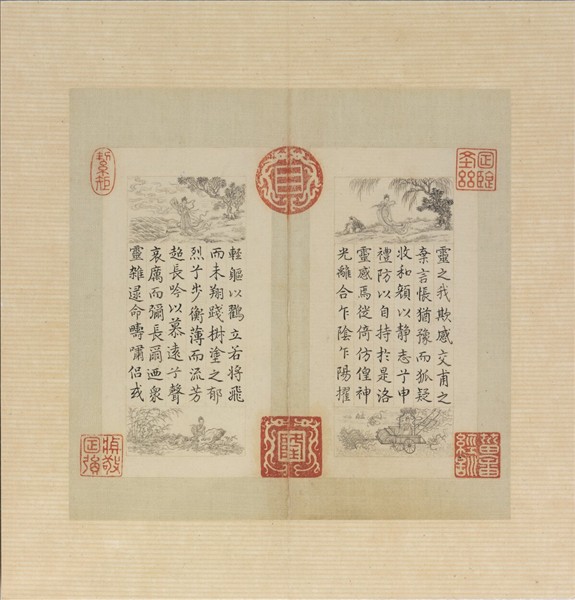 靈之我欺感交甫之
棄言悵猶豫而狐疑
收和顔以静志兮申
禮防以自持於是洛
靈感焉徙倚仿偟神
光離合乍陰乍陽擢
輕軀以鶴立若將飛
而未翔踐椒塗之郁
烈兮步衡薄而流芳
超長吟以慕遠兮聲
哀厲而彌長爾迺衆
靈雜遝命疇嘯侣或
絜矩
隆
菑畬經訓